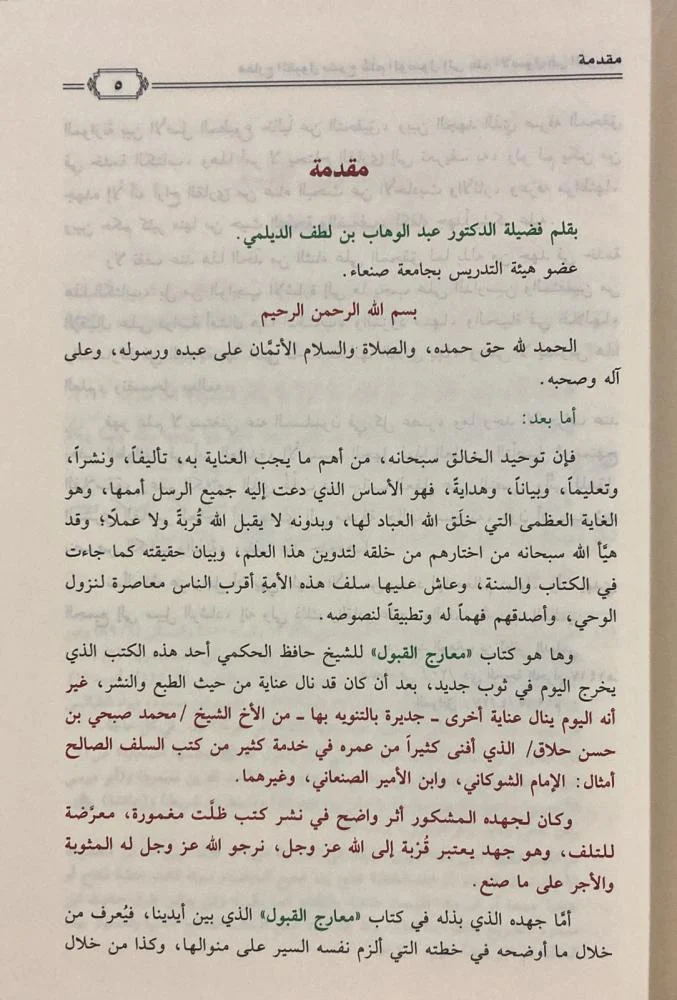 مقدمة
٥
مقدمة
بقلم فضيلة الدكتور عبد الوهاب بن لطف الديلمي.
عضو هيئة التدريس بجامعة صنعاء.
بسم الله الرحمن الرحيم
الحمد لله حق حمده، والصلاة والسلام الأتمَّان على عبده ورسوله، وعلى
آله وصحبه.
أما بعد:
فإن توحيد الخالق سبحانه، من أهم ما يجب العناية به، تأليفاً، ونشراً،
وتعليماً، وبياناً، وهدايةً، فهو الأساس الذي دعت إليه جميع الرسل أممها، وهو
الغاية العظمى التي خلَق الله العباد لها، وبدونه لا يقبل الله قُربةً ولا عملًا؛ وقد
هيَّأ الله سبحانه من اختارهم من خلقه لتدوين هذا العلم، وبيان حقيقته كما جاءت
في الكتاب والسنة، وعاش عليها سلف هذه الأمةِ أقرب الناس معاصرة لنزول
الوحي، وأصدقهم فهماً له وتطبيقاً لنصوصه.
وها هو كتاب «معارج القبول» للشيخ حافظ الحكمي أحد هذه الكتب الذي
يخرج اليوم في ثوب جديد، بعد أن كان قد نال عناية من حيث الطبع والنشر، غير
أنه اليوم ينال عناية أخرى ـ جديرة بالتنويه بها ـ من الأخ الشيخ /محمد صبحي بن
حسن حلاق/ الذي أفنى كثيراً من عمره في خدمة كثير من كتب السلف الصالح
أمثال: الإمام الشوكاني، وابن الأمير الصنعاني، وغيرهما.
وكان لجهده المشكور أثر واضح في نشر كتب ظلَّت مغمورة، معرَّضة
للتلف، وهو جهد يعتبر قُرْبة إلى الله عز وجل، نرجو الله عز وجل له المثوبة
والأجر على ما صنع.
أمَّا جهده الذي بذله في كتاب «معارج القبول» الذي بين أيدينا، فيُعرف من
خلال ما أوضحه في خطته التي ألزم نفسه السير على منوالها، وكذا من خلال